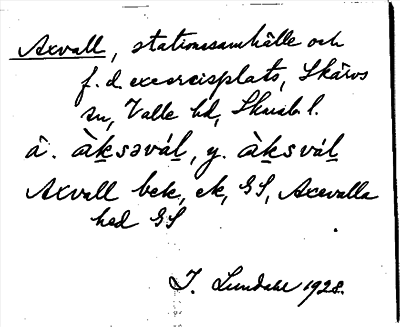 Axvall, stationssamhälle och
f. d. exercisplats, Skärvs
sn, Valle hd, Skarab. l.
ä. àksəvál, y. àksvál
Axvall bek, ek, GS, Axevalla
hed GS
J. Lundahl 1928.